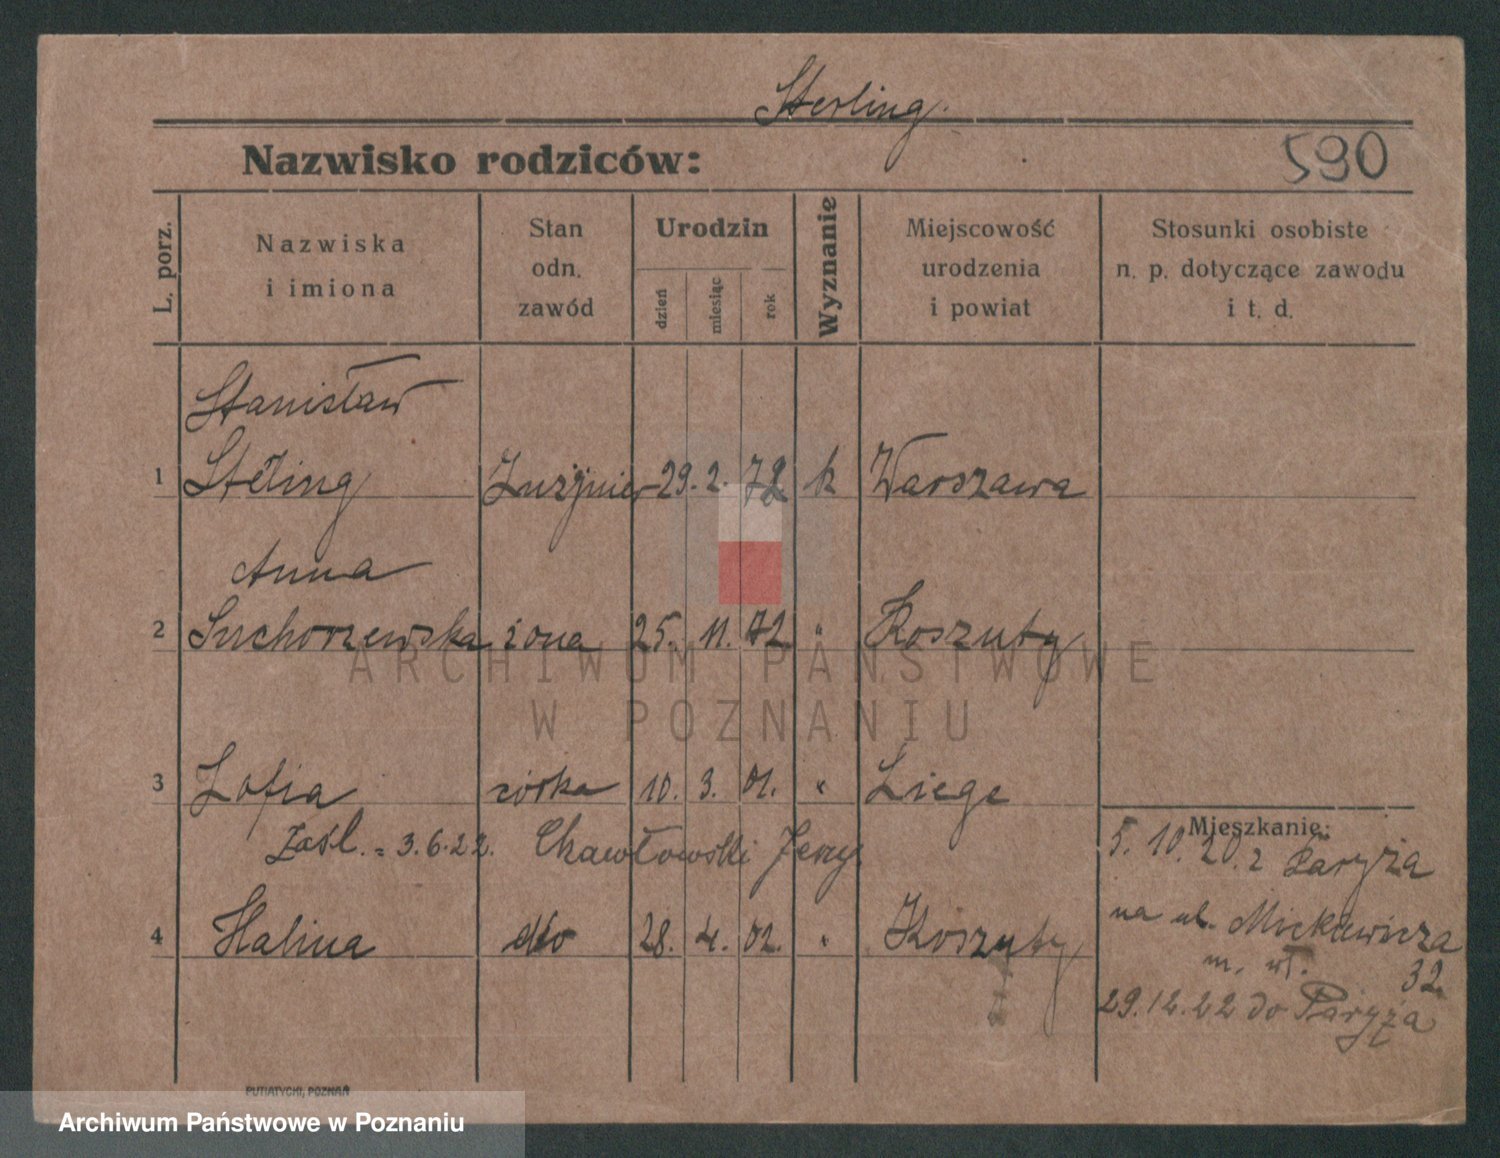 Sterling.
Nazwisko rodziców:
590
L. porz.
Nazwiska
i imiona
Stan
odn.
zawód
Urodzin
dzień
miesiąc
rok
Wyznanie
Miejscowość
urodzenia
i powiat
Stosunki osobiste
n. p. dotyczące zawodu
i t. d.
Stanisław
1 Sterling Inżynier 29. 2. 72 k Warszawa
Anna
2 Suchorzewska żona 25. 11. 72 " Koszuty
3 Zofia córka 10. 3. 01. " Liege
Zaśl. = 3.6.22. Chawłowski Jerzy
4 Halina dto 28. 4. 02. " Koszuty
Mieszkanie:
5. 10. 20. z Paryża
na ul. Mickiewicza
m. wł. 32
29.12.22 do Paryża
PUTIATYCKI, POZNAŃ
ARCHIWUM PAŃSTWOWE
W POZNANIU
Archiwum Państwowe w Poznaniu